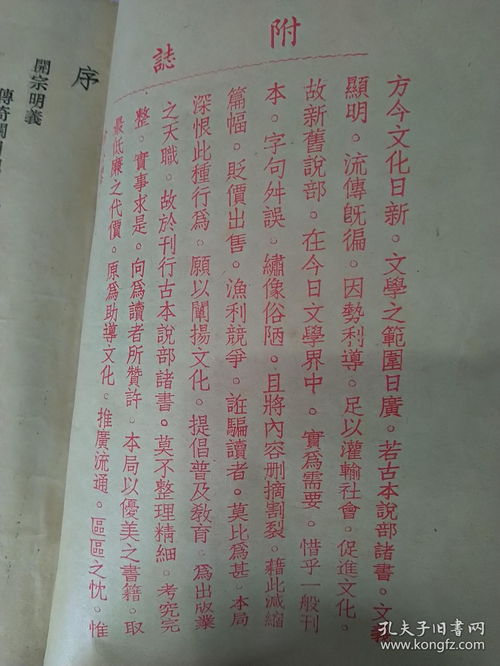 附誌
方今文化日新。文學之範圍日廣。若古本說部諸書。文義
顯明。流傳旣徧。因勢利導。足以灌輸社會。促進文化。
故新舊說部。在今日文學界中。實爲需要。惜乎一般刊
本。字句舛誤。繡像俗陋。且將內容删摘割裂。藉此减縮
篇幅。貶價出售。漁利競爭。誑騙讀者。莫比爲甚。本局
深恨此種行爲。願以闡揚文化。提倡普及敎育。爲出版業
之天職。故於刊行古本說部諸書。莫不整理精細。考究完
整。實事求是。向爲讀者所贊許。本局以優美之書籍。取
最低廉之代價。原爲助導文化。推廣流通。區區之忱。惟
序
開宗明義
傳奇
孔夫子旧书网
kongfz.com